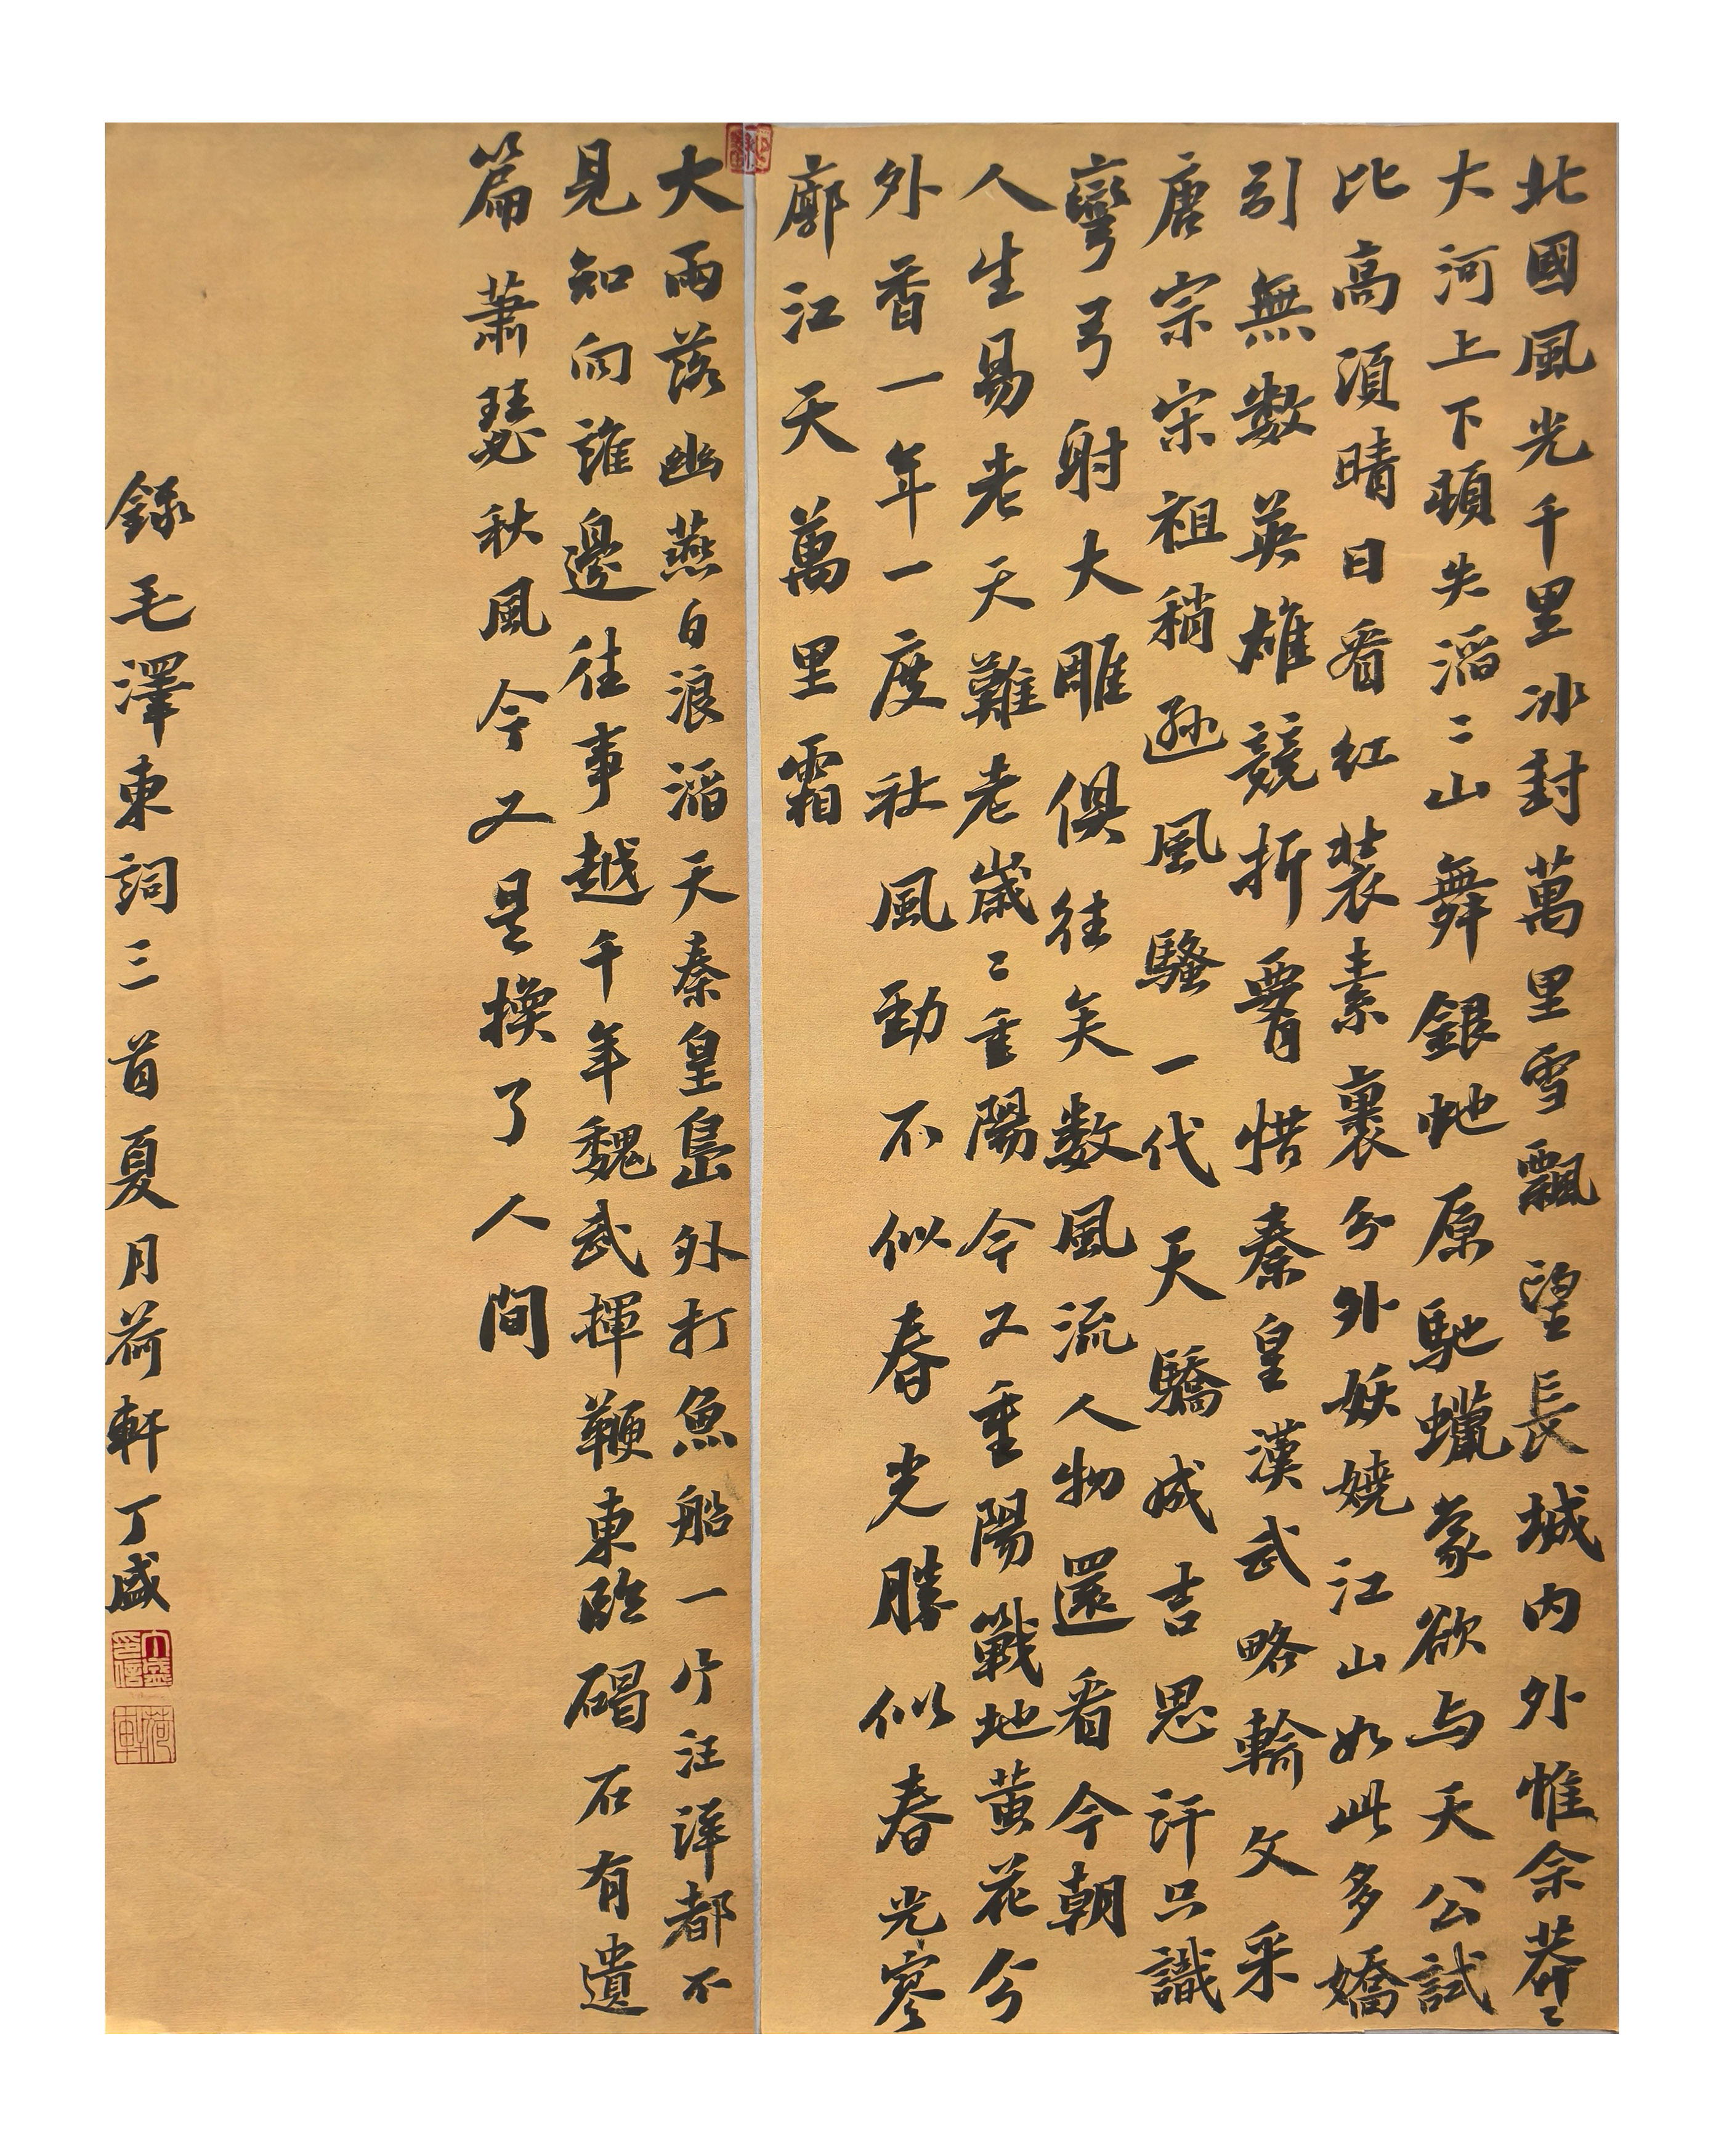 北國風光千里冰封萬里雪飄望長城内外惟余莽〻
大河上下頓失滔〻山舞銀虵原馳蠟象欲与天公試
比高須晴日看紅裝素裹分外妖嬈江山如此多嬌
引無數英雄競折腰惜秦皇漢武略輸文采
唐宗宋祖稍遜風騷一代天驕成吉思汗只識
彎弓射大雕俱往矣数風流人物還看今朝
人生易老天難老歲〻重陽今又重陽戰地黃花分
外香一年一度社風勁不似春光勝似春光寥
廓江天萬里霜
大雨落幽燕白浪滔天秦皇島外打魚船一片汪洋都不
見知向誰邊往事越千年魏武揮鞭東臨碣石有遺
篇蕭瑟秋風今又是換了人間
錄毛澤東詞三首夏月荷軒丁盛
丁盛印信
荷軒